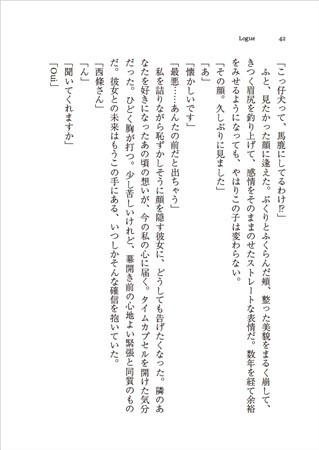 Logue
42
「こっ仔犬って、馬鹿にしてるわけ⁉」
　ふと、見たかった顔に逢えた。ぷくりとふくらんだ頬、整った美貌をまるく崩して、
きつく眉尻を釣り上げて、感情をそのままのせたストレートな表情だ。数年を経て余裕
をみせるようになっても、やはりこの子は変わらない。
「その顔。久しぶりに見ました」
「あ」
「懐かしいです」
「最悪……あんたの前だと出ちゃう」
　私を詰りながら恥ずかしそうに顔を隠す彼女に、どうしても告げたくなった。隣のあ
なたを好きになったあの頃の想いが、今の私の心に届く。タイムカプセルを開けた気分
だった。ひどく胸が打つ。少し苦しいけれど、幕開き前の心地よい緊張と同質のもの
だ。彼女との未来はもうこの手にある、いつしかそんな確信を抱いていた。
「西條さん」
「ん」
「聞いてくれますか」
「Oui」